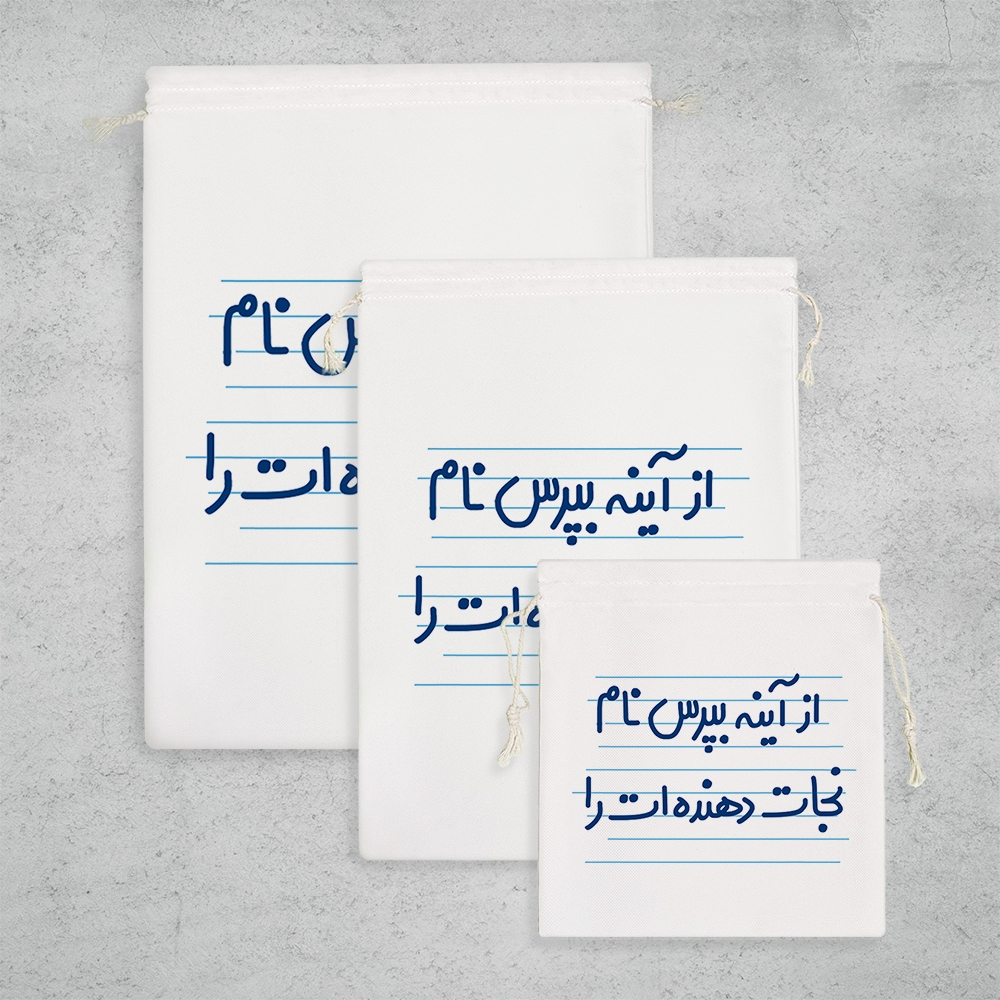 س نام
ه ات را
از آینه بپرس نام
ه ات را
از آینه بپرس نام
نجات دهنده ات را